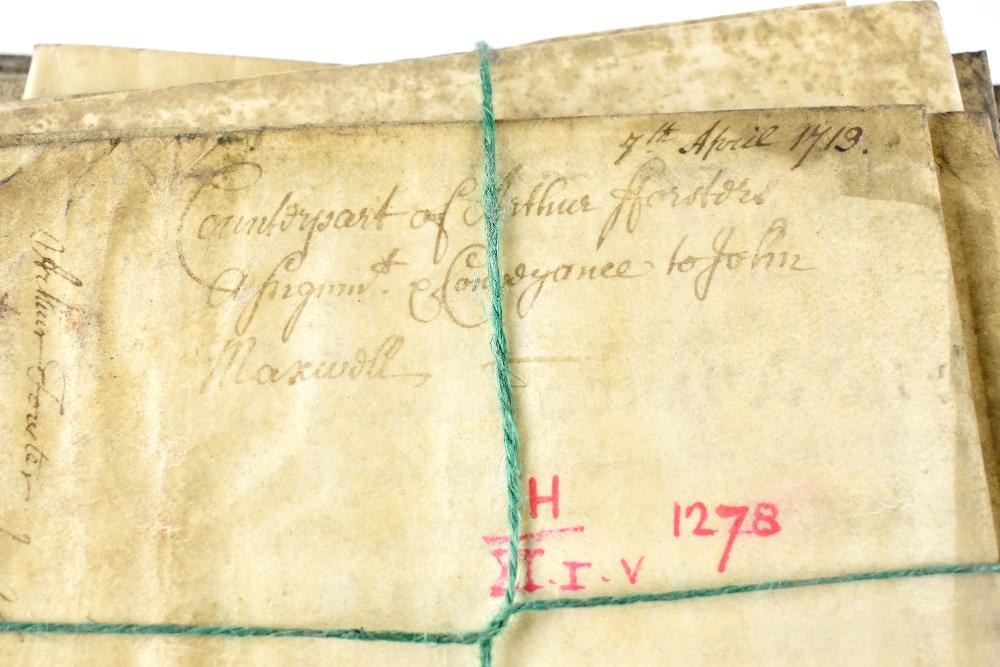 7th April 1713.
Counterpart of Arthur fforsters
Assignmt. & Conveyance to John
Maxwell
Arthur Forster
H
XI.I.V
1278